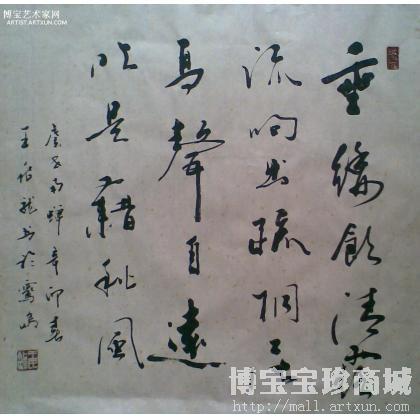 博宝艺术家网
ARTIST.ARTXUN.COM
垂緌飲清露
流响出疏桐居
高聲自遠
非是藉秋風
虞世南蝉辛卯春
王龍书於鹭島
博宝宝珍商城
http://mall.artxun.com